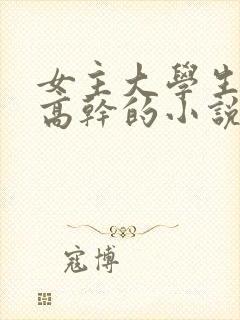 女主大學生
高幹的小說
寇博